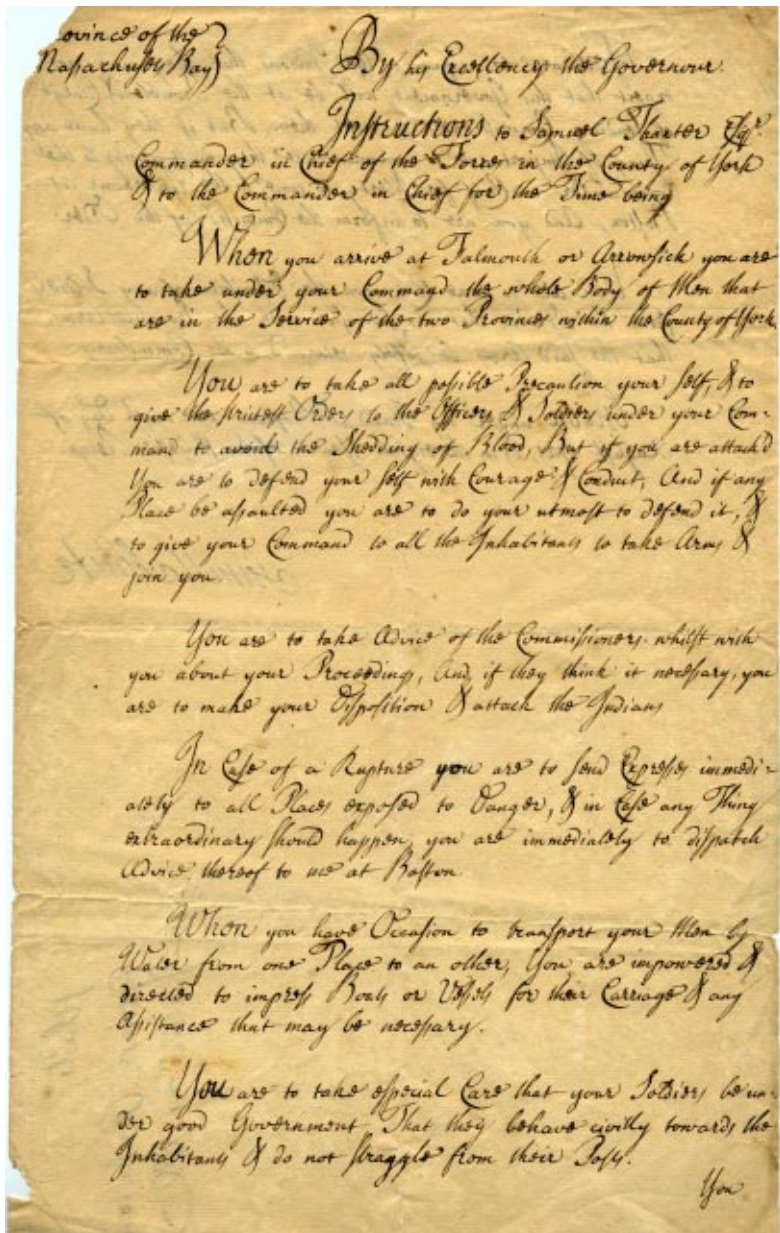 ovince of the
Massachusets Bay} By his Excellency the Governour.
Instructions to Samuel Thaxter Esqr.
Commander in Chief of the Forces in the County of York
& to the Commander in Chief for the Time being
When you arrive at Falmouth or Arrowsick you are
to take under your Command the whole Body of Men that
are in the Service of the two Provinces within the County of York.
You are to take all possible Precaution your self, & to
give the strictest Orders to the Officers & Soldiers under your Com-
mand to avoid the Shedding of Blood, But if you are attack'd
You are to defend your self with Courage & Conduct, And if any
Place be assaulted you are to do your utmost to defend it, &
to give your Command to all the Inhabitants to take Arms &
join you.
You are to take Advice of the Commissioners whilst with
you about your Proceedings, And, if they think it necessary, you
are to make your Disposition & attack the Indians
In Case of a Rupture you are to send Expresses immedi-
ately to all Places exposed to Danger, & in Case any Thing
extraordinary should happen, you are immediately to dispatch
Advice thereof to me at Boston.
When you have Occasion to transport your Men by
Water from one Place to an other, You are impowered &
directed to impress Boats or Vessels for their Carriage & any
Assistance that may be necessary.
You are to take especial Care that your Soldiers be un-
der good Government That they behave civilly towards the
Inhabitants & do not straggle from their Posts.
You